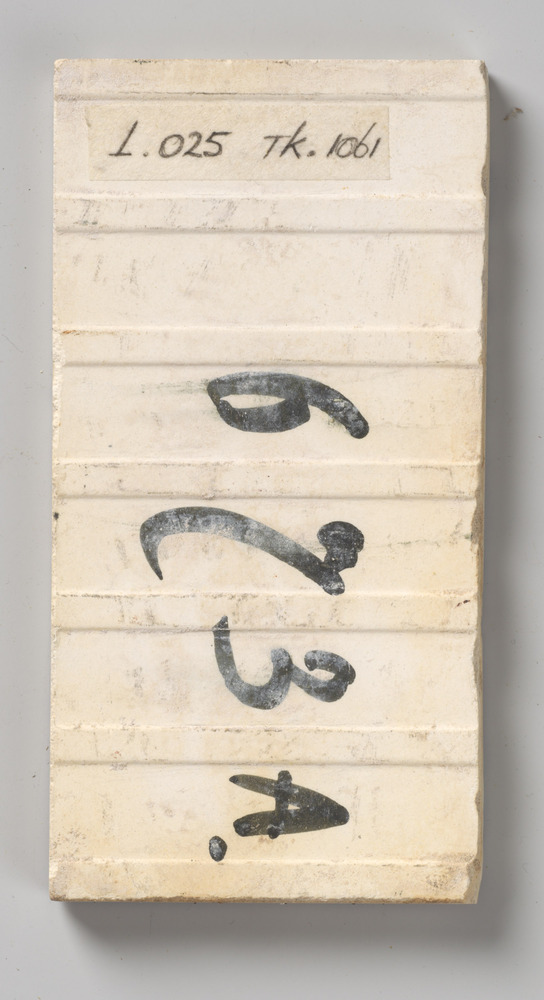 1.025 TK.1061
623A.